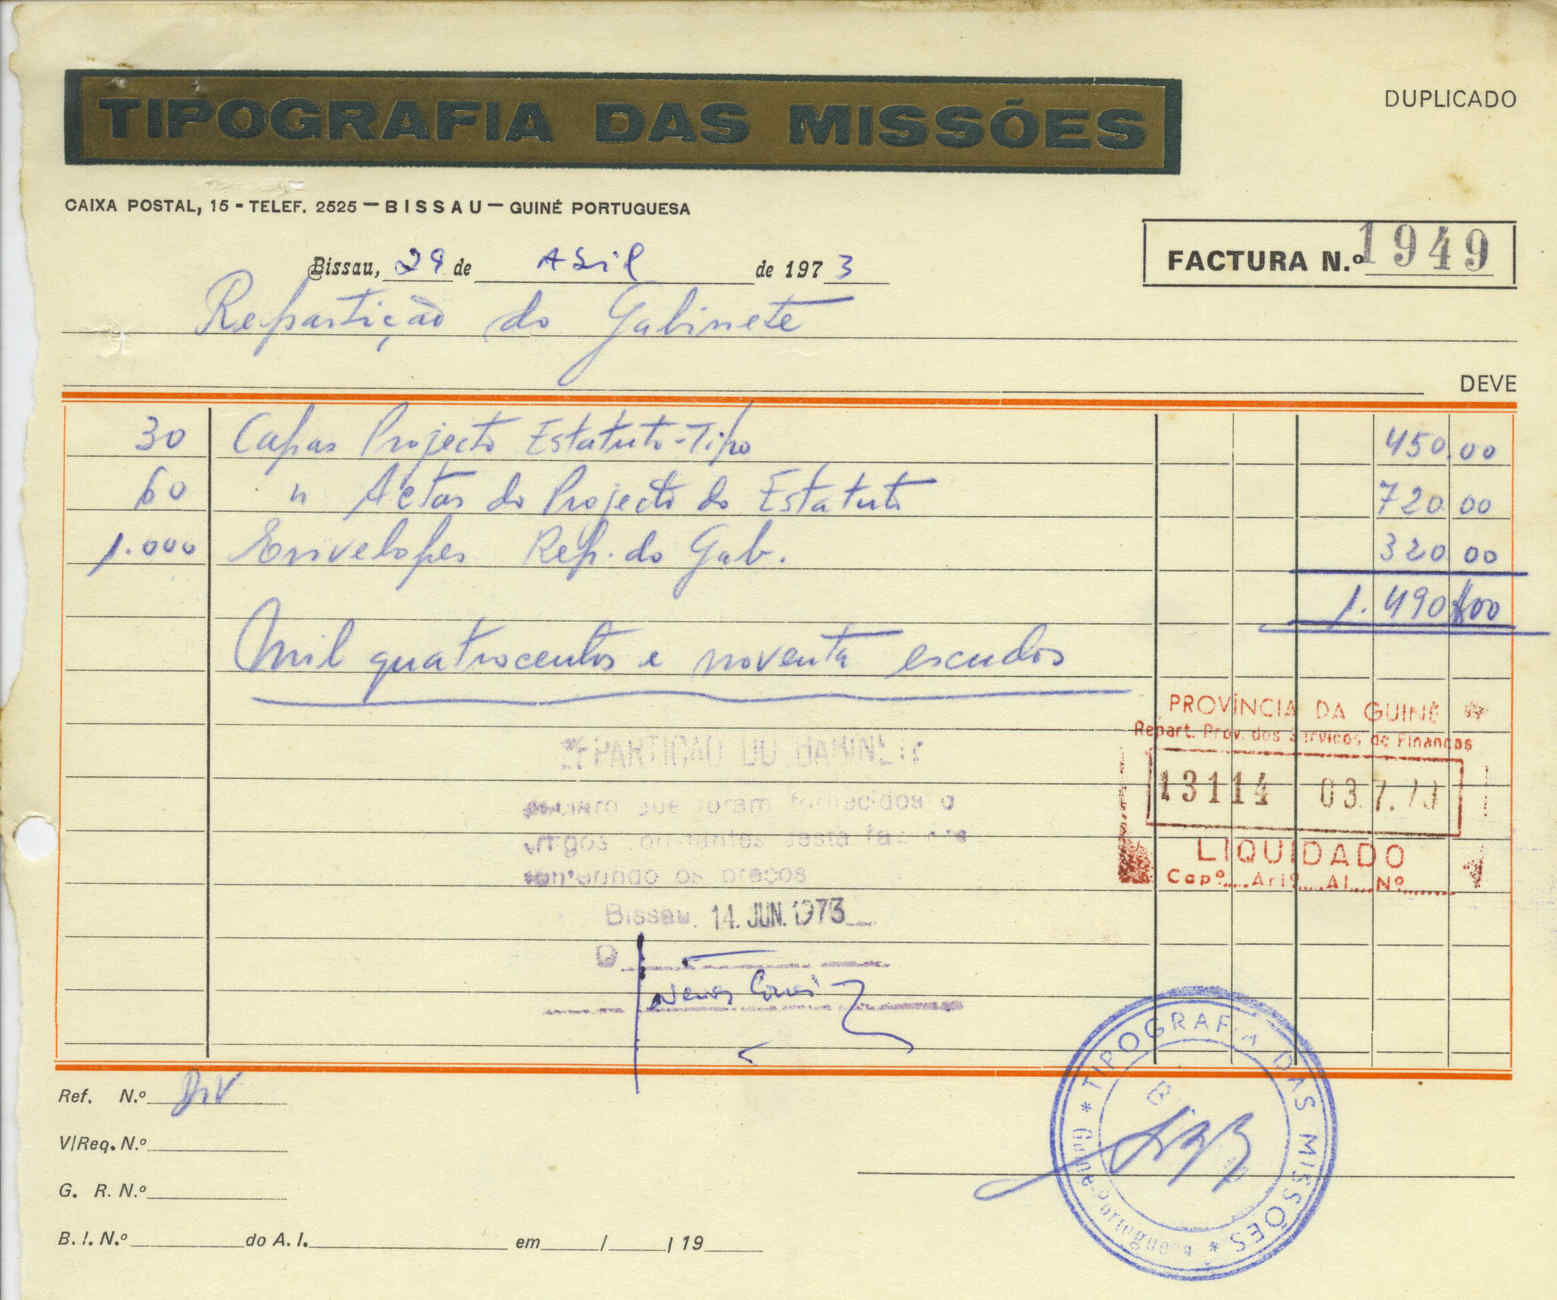 TIPOGRAFIA DAS MISSÕES
DUPLICADO
CAIXA POSTAL, 15 - TELEF. 2525 — BISSAU — GUINÉ PORTUGUESA
FACTURA N.º 1949
Bissau, 29 de Abril de 1973
Repartição do Gabinete
DEVE
30 Capas Projecto Estatuto-Tipo 450.00
60 " Actas do Projecto do Estatuto 720 00
1.000 Envelopes Rep. do Gab. 320 00
1.490$00
Mil quatrocentos e noventa escudos
PROVÍNCIA DA GUINÉ
Repart. Prov. dos Serviços de Finanças
13114 03.7.73
LIQUIDADO
Capº.... Artº.... Al.... Nº
REPARTIÇÃO DO GABINETE
Declaro que foram fornecidos o
artigos constantes desta factura
conferindo os preços
Bissau, 14. JUN. 1973
O
Ref. N.º
V/Req. N.º
G. R. N.º
B. I. N.º do A. I. em / / 19
* TIPOGRAFIA DAS MISSÕES *
Guiné Portuguesa